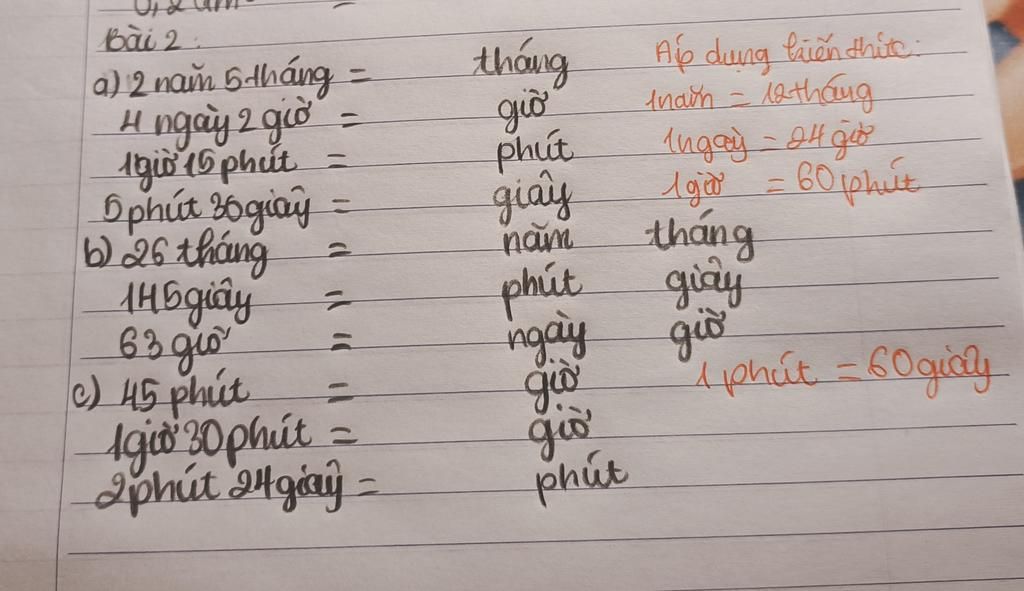 Bài 2:
a) 2 năm 5 tháng = tháng Áp dụng kiến thức:
4 ngày 2 giờ = giờ 1 năm = 12 tháng
1 giờ 15 phút = phút 1 ngày = 24 giờ
5 phút 36 giây = giây 1 giờ = 60 phút
b) 26 tháng = năm tháng
145 giây = phút giây
63 giờ = ngày giờ
c) 45 phút = giờ 1 phút = 60 giây
1 giờ 30 phút = giờ
2 phút 24 giây = phút